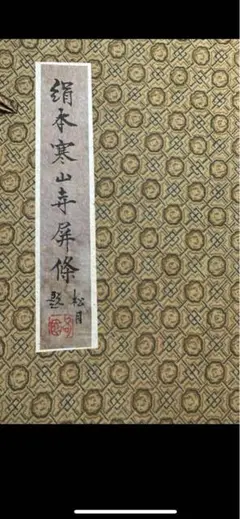 絹本寒山寺屏條
松月題